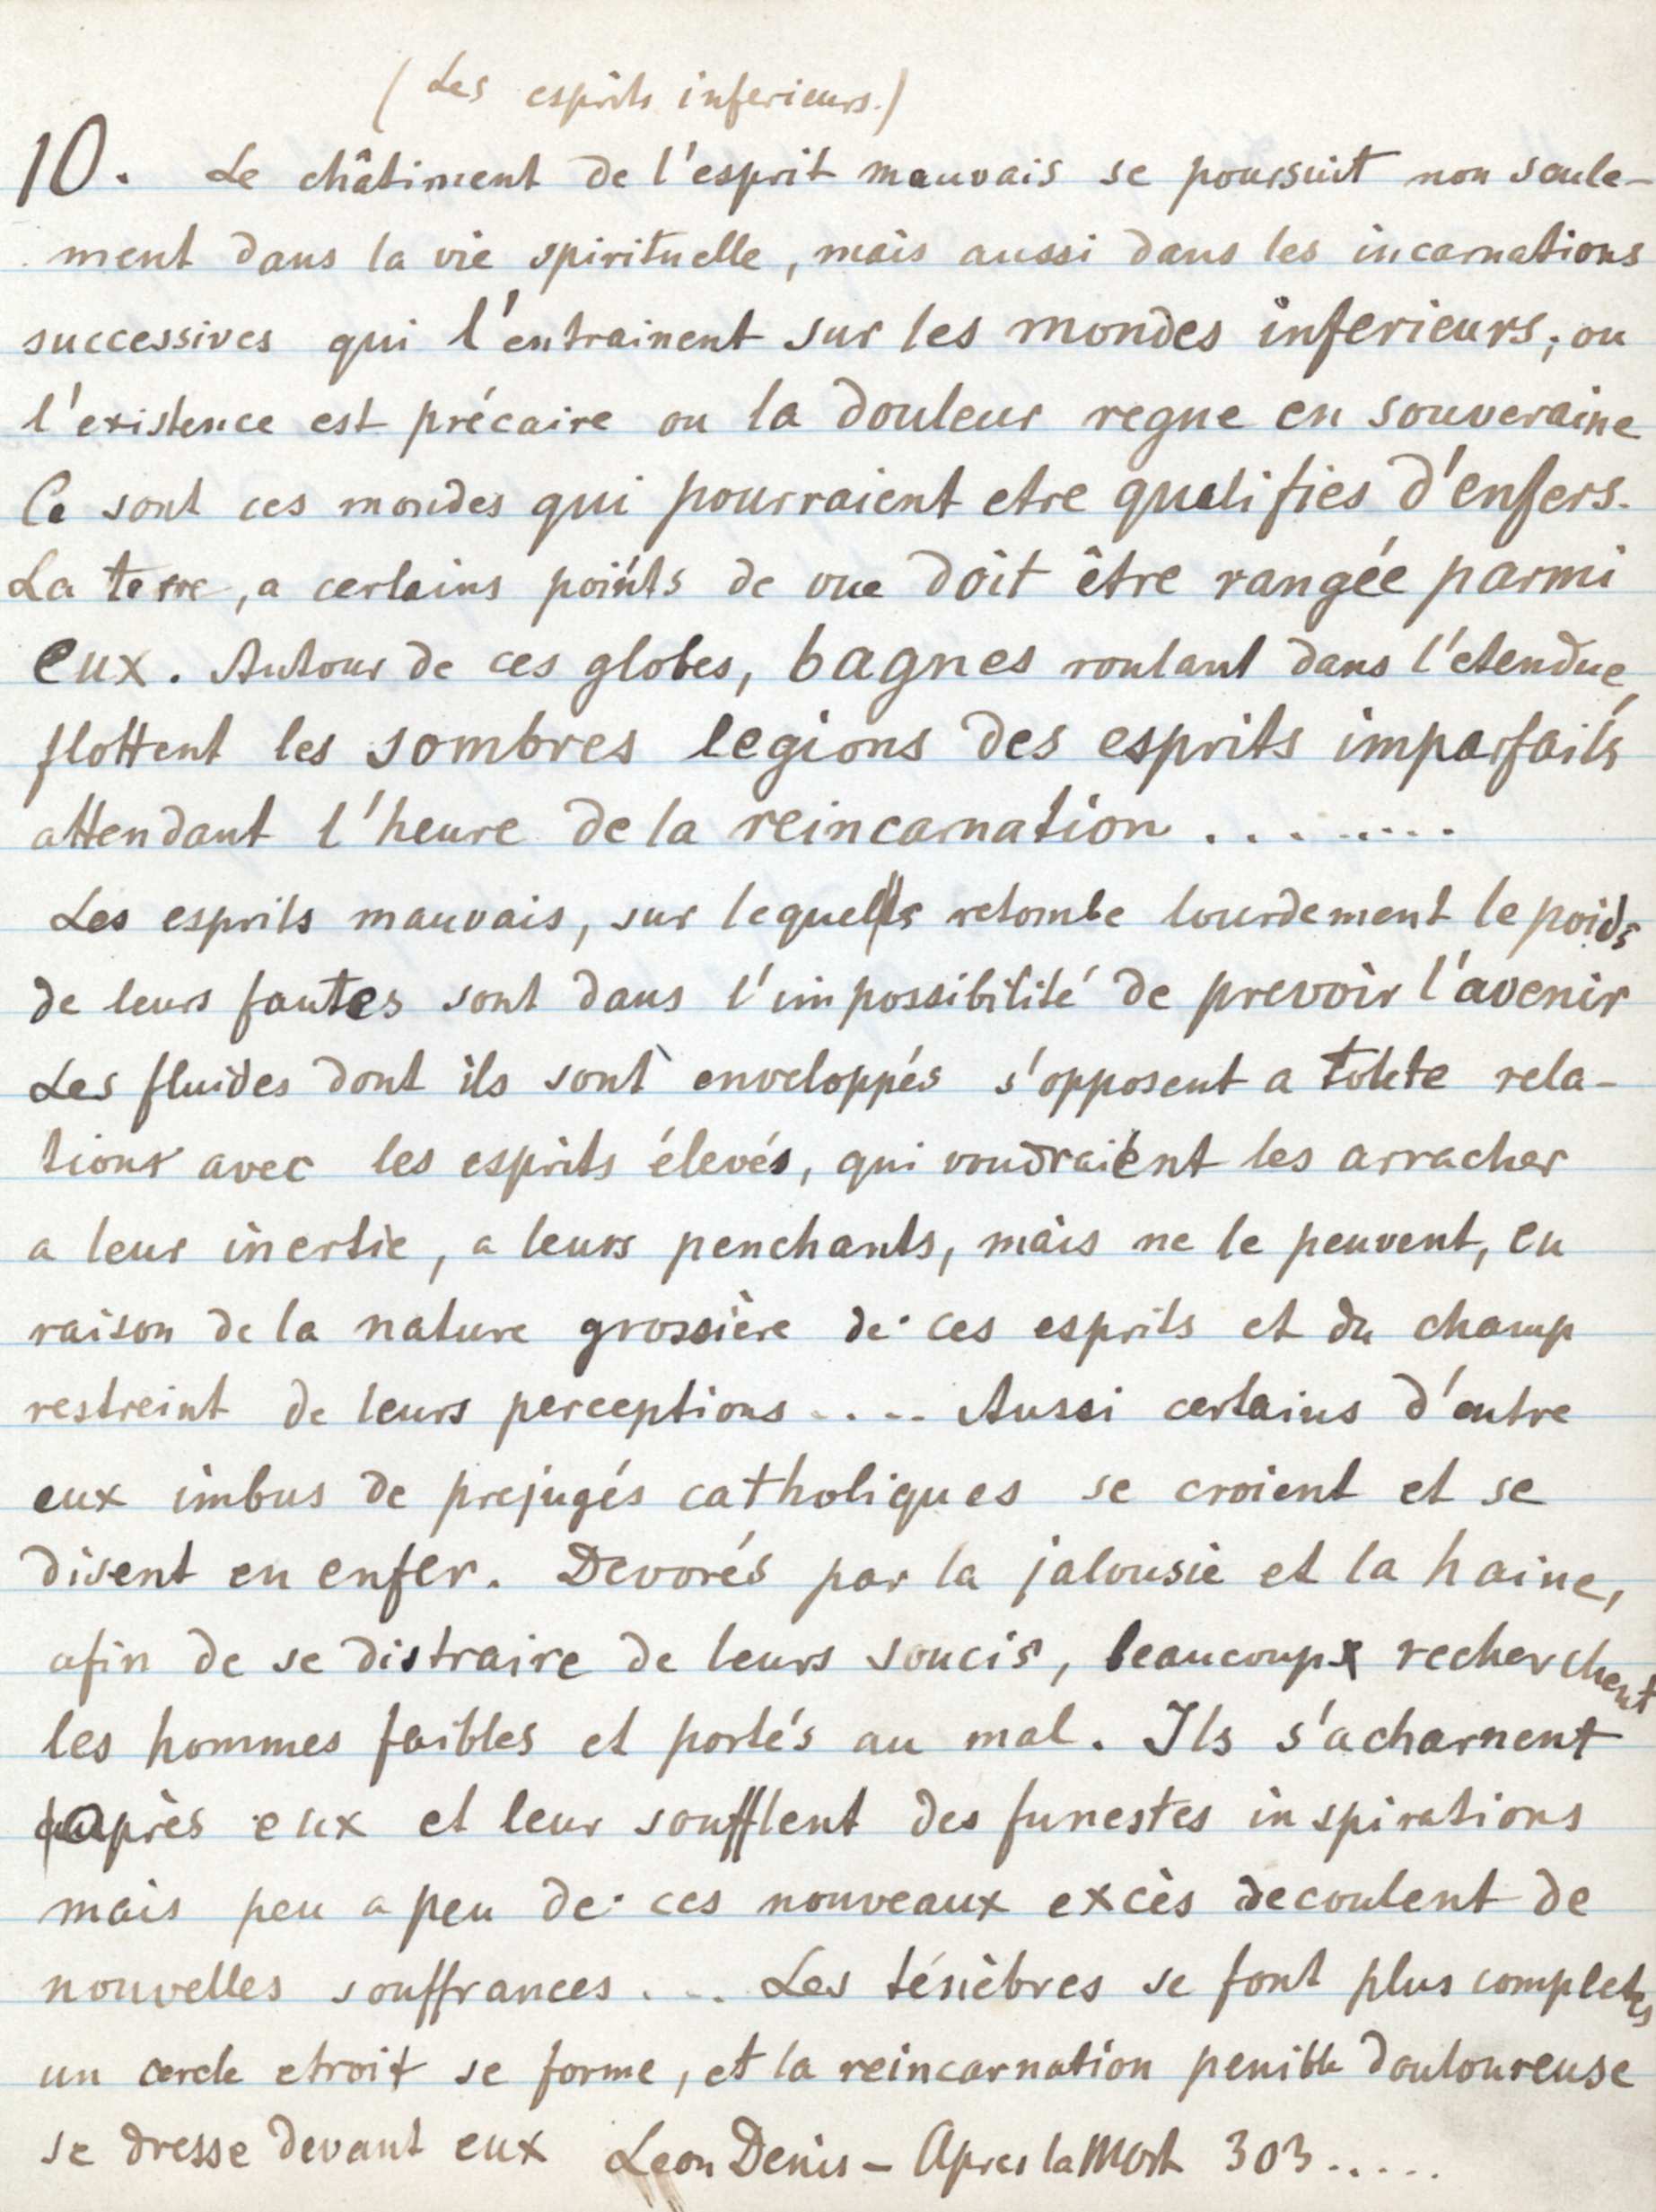 ( Les esprits inferieurs.)
10. Le châtiment de l'esprit mauvais se poursuit non seule-
ment dans la vie spirituelle, mais aussi dans les incarnations
successives qui l'entrainent sur les mondes inferieurs, ou
l'existence est précaire ou la douleur regne en souveraine
Ce sont ces mondes qui pourraient etre qualifies d'enfers.
La terre, a certains points de vue doit être rangée parmi
eux. Autour de ces globes, bagnes roulant dans l'etendue,
flottent les sombres legions des esprits imparfaits
attendant l'heure de la reincarnation . . . . . . . .
Les esprits mauvais, sur lequels retombe lourdement le poids
de leurs fautes sont dans l'impossibilité de prevoir l'avenir
Les fluides dont ils sont enveloppés s'opposent a toute rela-
tions avec les esprits élevés, qui voudraient les arracher
a leur inertie, a leurs penchants, mais ne le peuvent, en
raison de la nature grossière de ces esprits et du champ
restreint de leurs perceptions .... Aussi certains d'entre
eux imbus de prejugés catholiques se croient et se
disent en enfer. Devorés par la jalousie et la haine,
afin de se distraire de leurs soucis, beaucoup recherchent
les hommes faibles et portés au mal. Ils s'acharnent
après eux et leur soufflent des funestes inspirations
mais peu a peu de ces nouveaux excès decoulent de
nouvelles souffrances ... Les ténèbres se font plus completes
un cercle etroit se forme, et la reincarnation penible douloureuse
se dresse devant eux Leon Denis - Apres la Mort 303.....